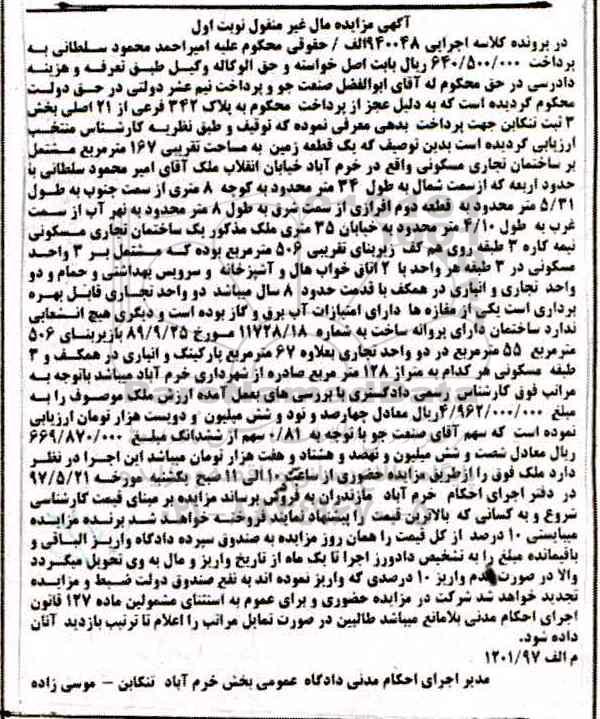 آگهی مزایده مال غیر منقول نوبت اول
در پرونده کلاسه اجرایی ۹۴۰۰۴۸الف / حقوقی محکوم علیه امیراحمد محمود سلطانی به
پرداخت ۶۴۰/۵۰۰/۰۰۰ ریال بابت اصل خواسته و حق الوکاله وکیل طبق تعرفه و هزینه
دادرسی در حق محکوم له آقای ابوالفضل صنعت جو و پرداخت نیم عشر دولتی در حق دولت
محکوم گردیده است که به دلیل عجز از پرداخت محکوم به پلاک ۳۴۲ فرعی از ۲۱ اصلی بخش
۳ ثبت تنکابن جهت پرداخت بدهی معرفی نموده که توقیف و طبق نظریه کارشناس منتخب
ارزیابی گردیده است بدین توصیف که یک قطعه زمین به مساحت تقریبی ۱۶۷ مترمربع مشتمل
بر ساختمان تجاری مسکونی واقع در خرم آباد خیابان انقلاب ملک آقای امیر محمود سلطانی با
حدود اربعه که ازسمت شمال به طول ۳۴ متر محدود به کوچه ۸ متری از سمت جنوب به طول
۵/۳۱ متر محدود به قطعه دوم افرازی از سمت شرق به طول ۸ متر محدود به نهر آب از سمت
غرب به طول ۴/۱۰ متر محدود به خیابان ۳۵ متری ملک مذکور یک ساختمان تجاری مسکونی
نیمه کاره ۳ طبقه روی هم کف زیربنای تقریبی ۵۰۶ مترمربع بوده که مشتمل بر ۳ واحد
مسکونی در ۳ طبقه هر واحد با ۲ اتاق خواب هال و آشپزخانه و سرویس بهداشتی و حمام و دو
واحد تجاری و انباری در همکف با قدمت حدود ۸ سال میباشد دو واحد تجاری قابل بهره
برداری است یکی از مغازه ها دارای امتیازات آب برق و گاز بوده است و دیگری هیچ انشعابی
ندارد ساختمان دارای پروانه ساخت به شماره ۱۱۷۲۸/۱۸ مورخ ۸۹/۹/۲۵ بازیربنای ۵۰۶
مترمربع ۵۵ مترمربع در دو واحد تجاری بعلاوه ۶۷ مترمربع پارکینگ و انباری در همکف و ۳
طبقه مسکونی هر کدام به متراژ ۱۲۸ متر مربع صادره از شهرداری خرم آباد میباشد باتوجه به
مراتب فوق کارشناس رسمی دادگستری با بررسی های بعمل آمده ارزش ملک موصوف را به
مبلغ ۴/۹۶۲/۰۰۰/۰۰۰ریال معادل چهارصد و نود و شش میلیون و دویست هزار تومان ارزیابی
نموده است که سهم آقای صنعت جو با توجه به ۰/۸۱ سهم از ششدانگ مبلغ ۶۶۹/۸۷۰/۰۰۰
ریال معادل شصت و شش میلیون و نهصد و هشتاد و هفت هزار تومان میباشد این اجرا در نظر
دارد ملک فوق را ازطریق مزایده حضوری از ساعت ۱۰ الی ۱۱ صبح یکشنبه مورخه ۹۷/۵/۲۱
در دفتر اجرای احکام خرم آباد مازندران به فروش برساند مزایده بر مبنای قیمت کارشناسی
شروع و به کسانی که بالاترین قیمت را پیشنهاد نمایند فروخته خواهد شد برنده مزایده
میبایستی ۱۰ درصد از کل قیمت را همان روز مزایده به صندوق سپرده دادگاه واریز الباقی و
باقیمانده مبلغ را به تشخیص دادورز اجرا تا یک ماه از تاریخ واریز و مال به وی تحویل میگردد
والا در صورت عدم واریز ۱۰ درصدی که واریز نموده اند به نفع صندوق دولت ضبط و مزایده
تجدید خواهد شد شرکت در مزایده حضوری و برای عموم به استثنای مشمولین ماده ۱۲۷ قانون
اجرای احکام مدنی بلامانع میباشد طالبین در صورت تمایل مراتب را اعلام تا ترتیب بازدید آنان
داده شود.
م الف ۱۲۰۱/۹۷
مدیر اجرای احکام مدنی دادگاه عمومی بخش خرم آباد تنکابن – موسی زاده